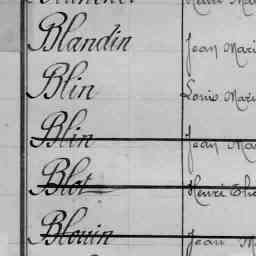 Blandin Jean Mari
Blin Louis Mari
Blin Jean Ma
Blot Henri
Blouin Jean M